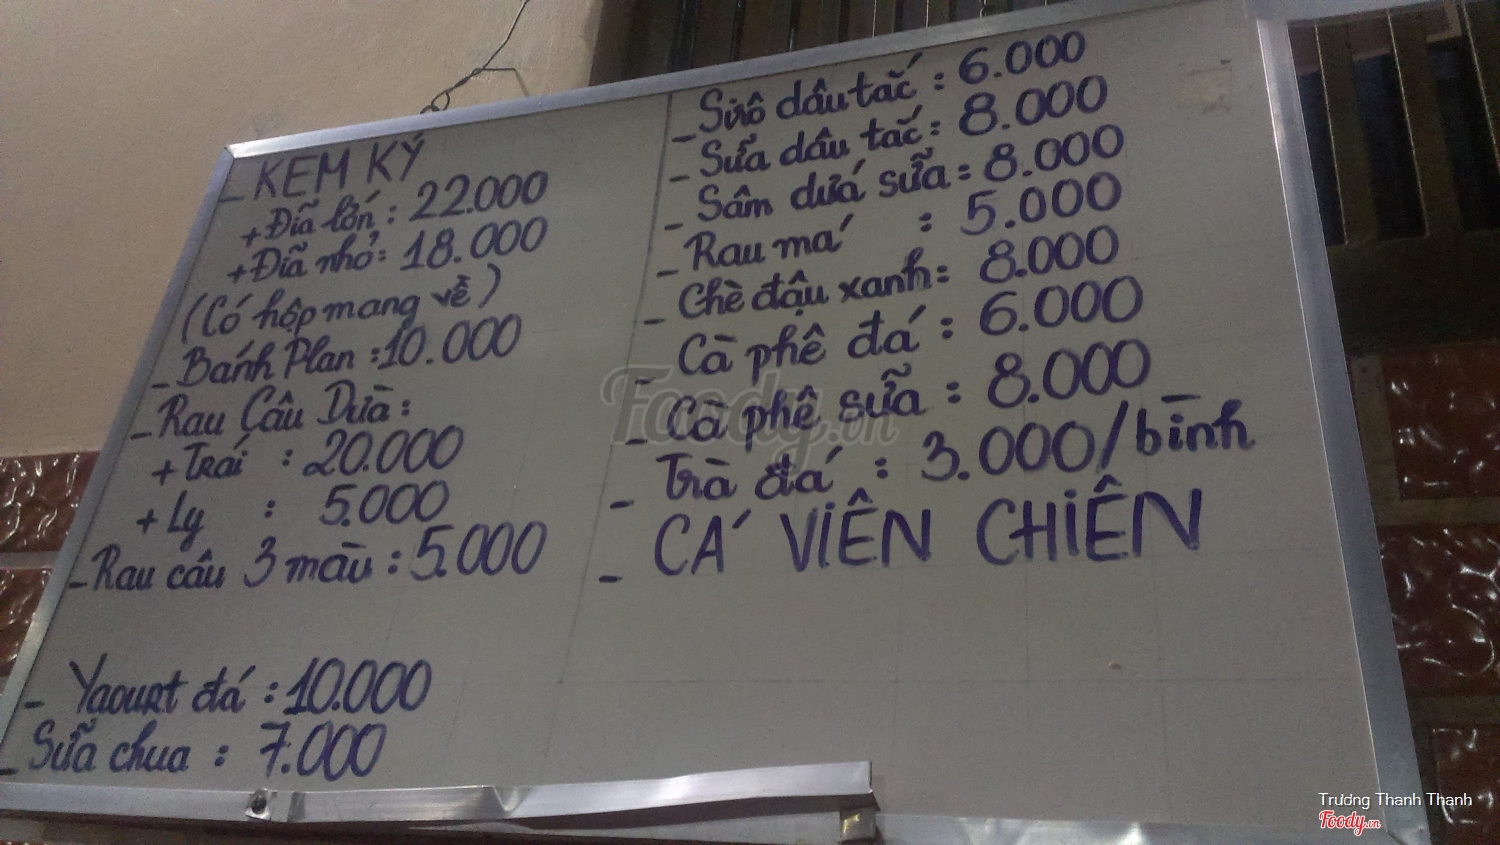 - KEM KÝ
+ Đĩa lớn : 22.000
+ Đĩa nhỏ : 18.000
(Có hộp mang về)
- Bánh Plan : 10.000
- Rau Câu Dừa :
+ Trái : 20.000
+ Ly : 5.000
- Rau câu 3 màu : 5.000
- Yaourt đá : 10.000
- Sữa chua : 7.000
- Sirô dâu tắc : 6.000
- Sữa dâu tắc : 8.000
- Sâm dứa sữa = 8.000
- Rau má : 5.000
- Chè đậu xanh = 8.000
- Cà phê đá : 6.000
- Cà phê sữa : 8.000
- Trà đá : 3.000/bình
- CÁ VIÊN CHIÊN
Foody.vn
Trương Thanh Thanh
Foody.vn